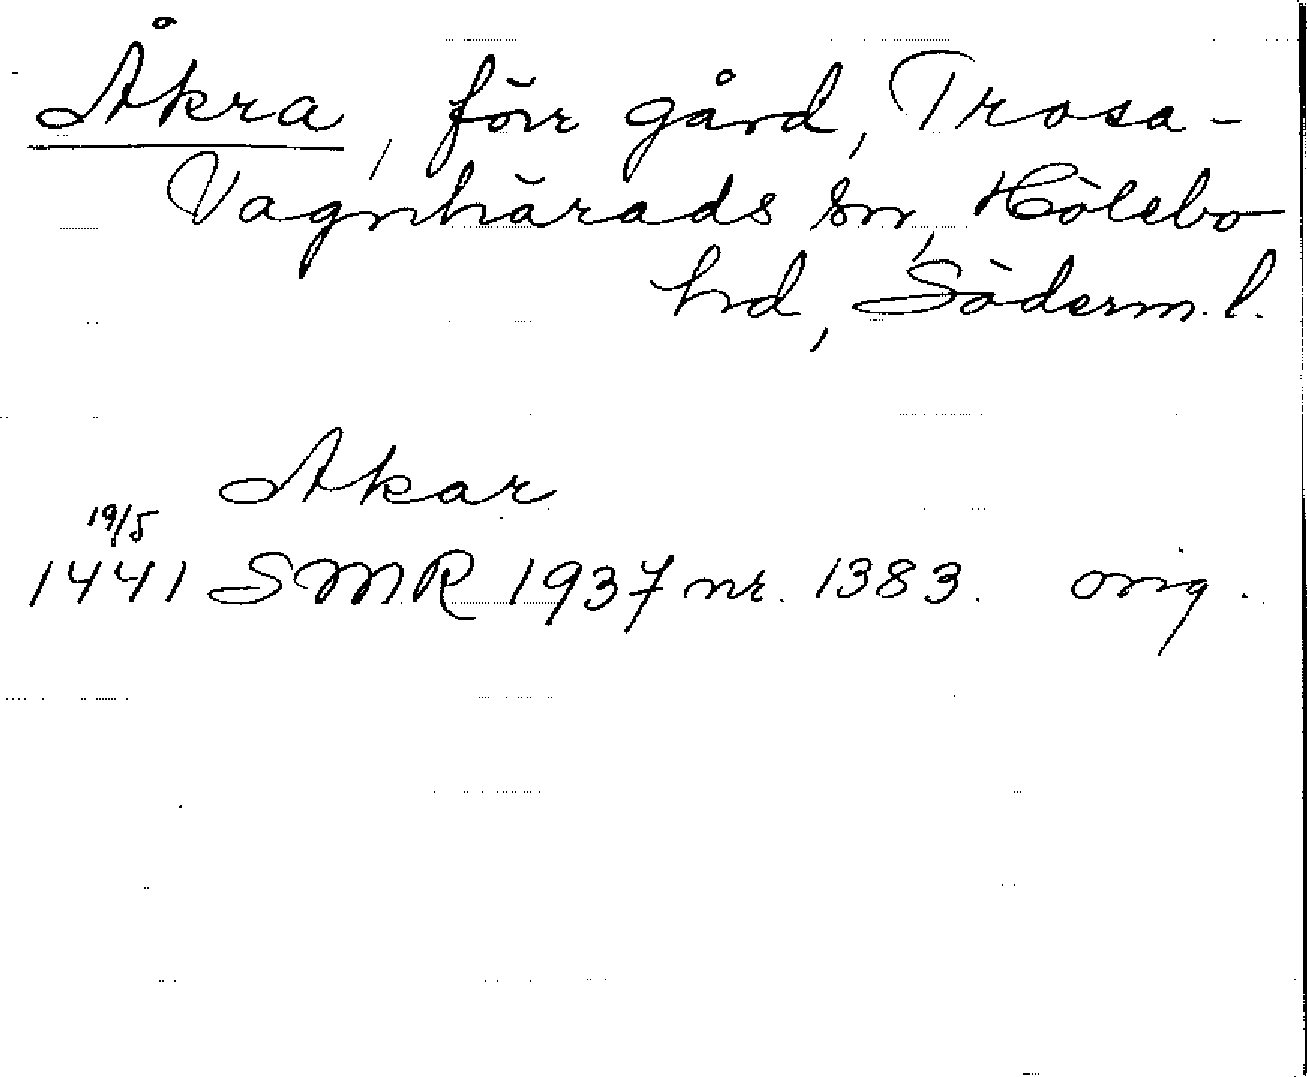 Åkra, förr gård, Trosa-
Vagnhärads sn, Hölebo
hd, Söderm. l.
Akar
19/5
1441 SMR 1937 nr. 1383. orig.